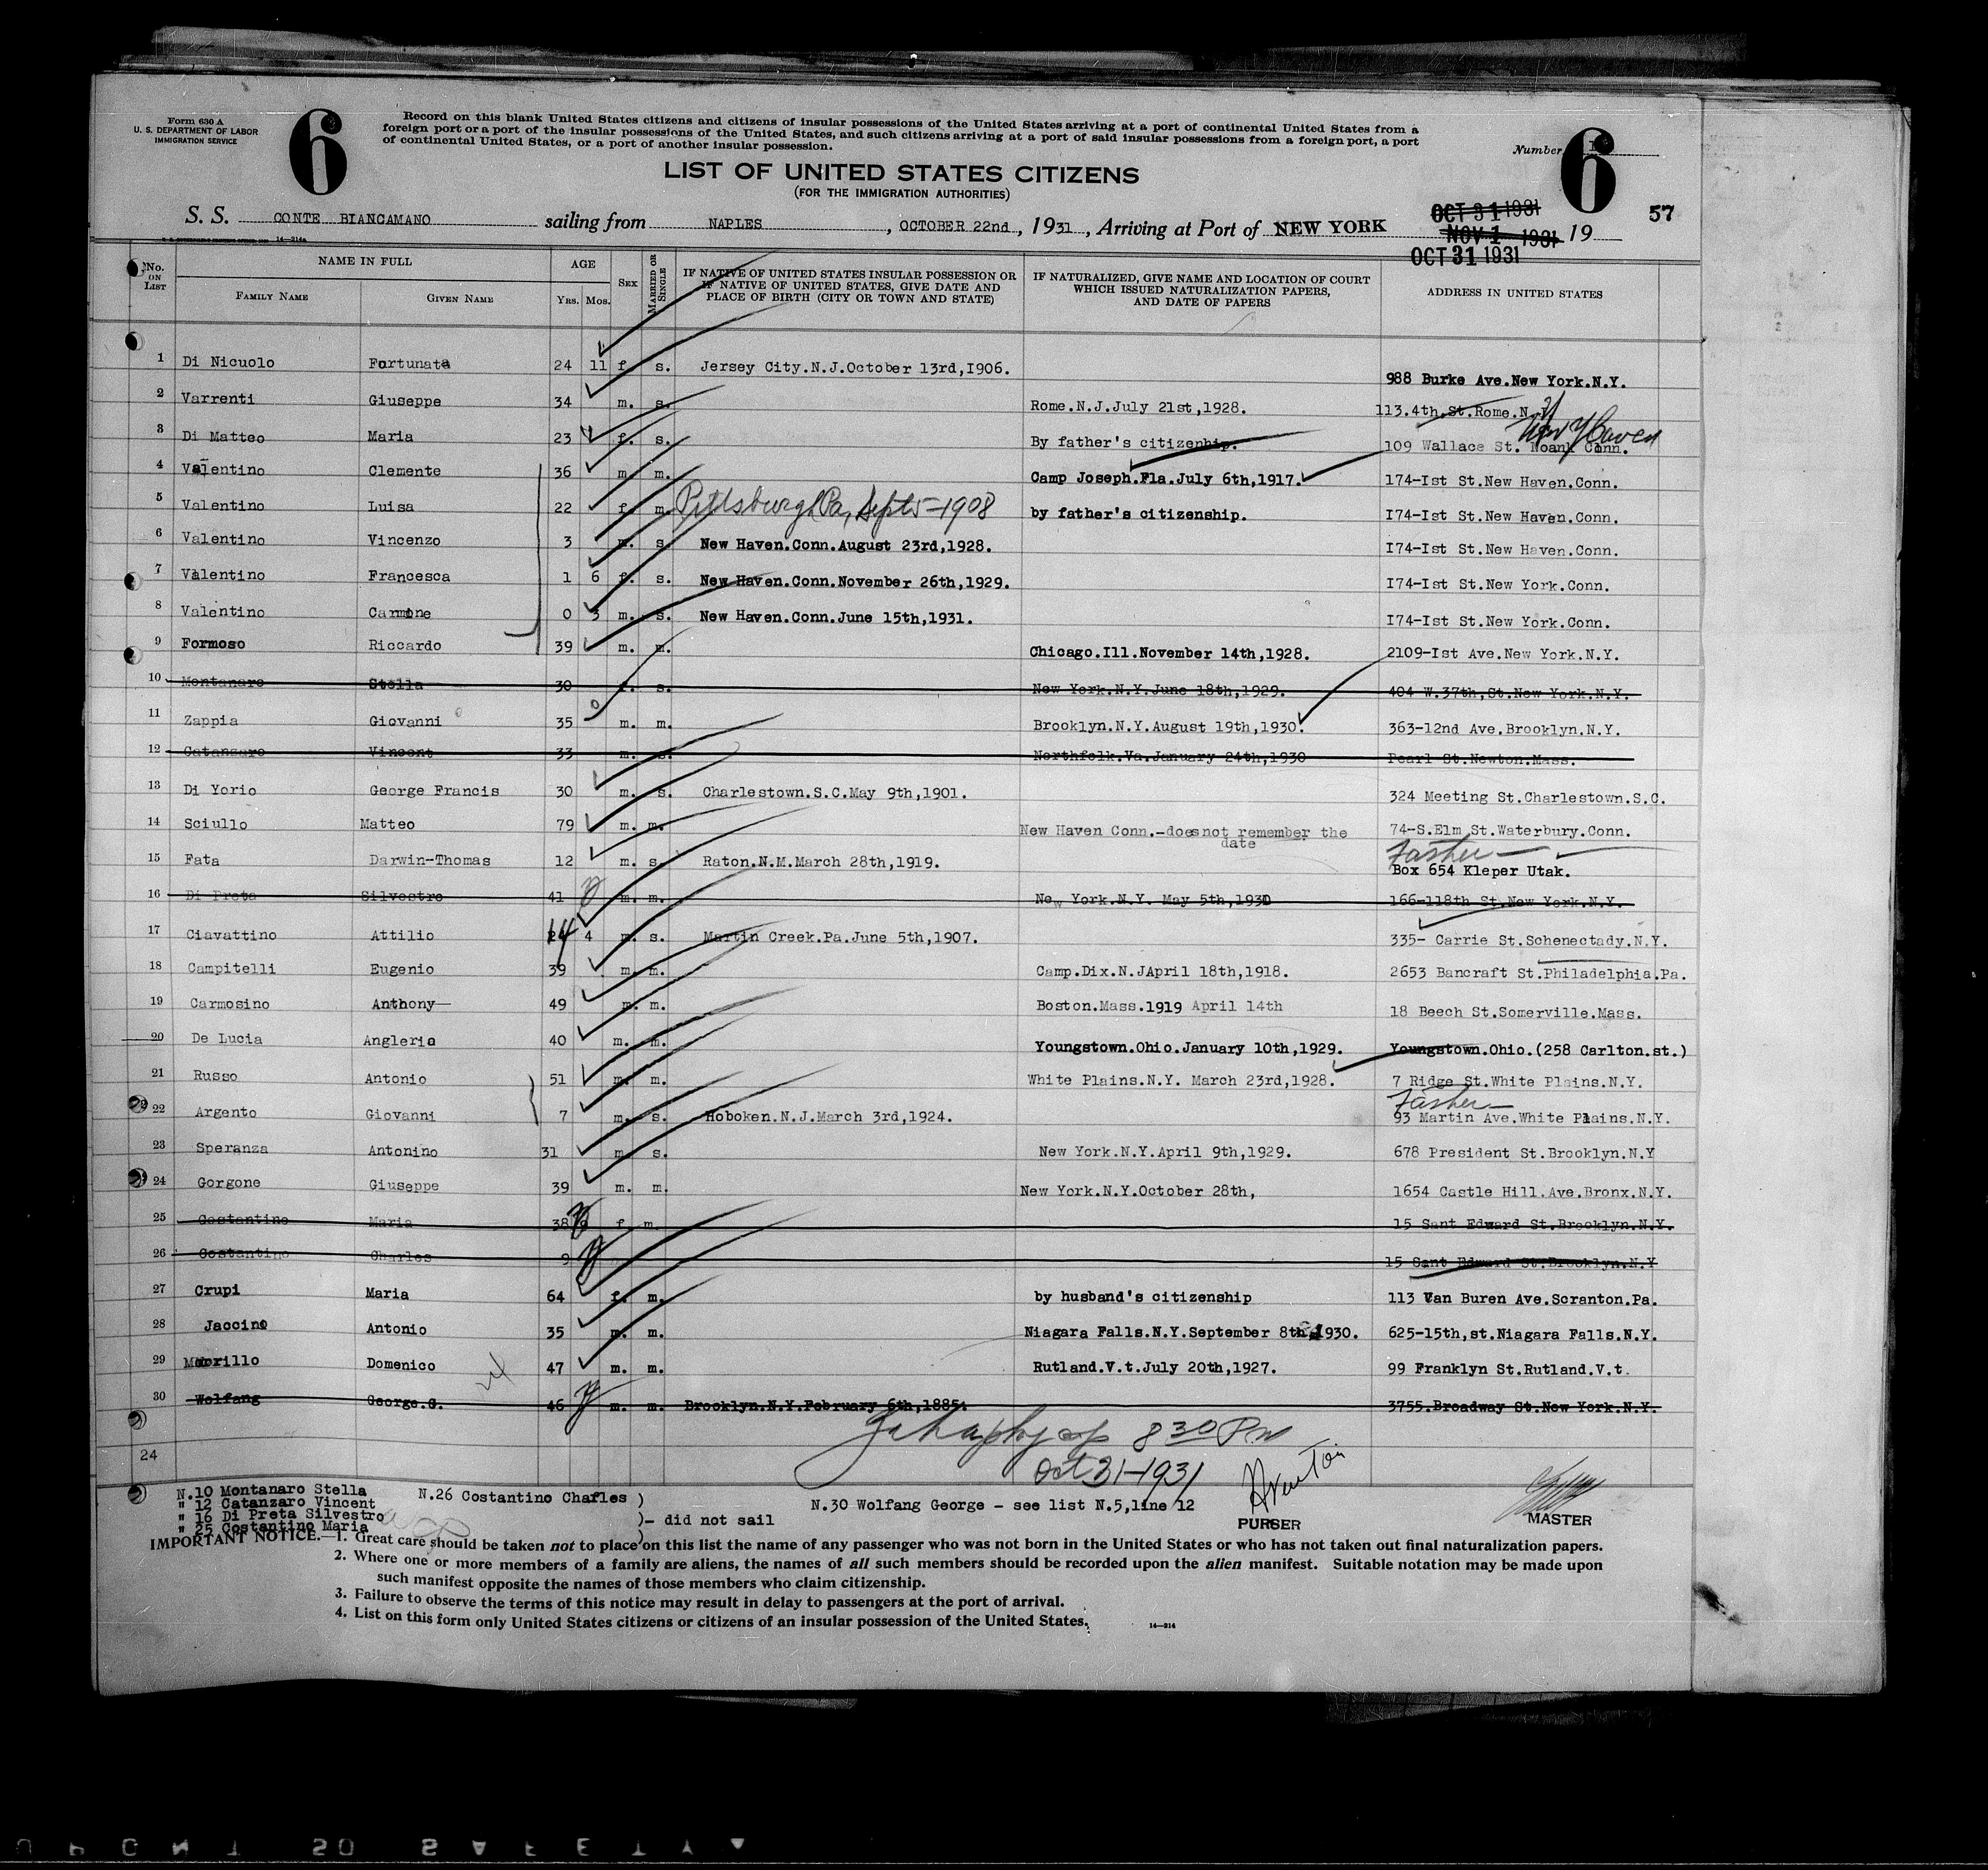 Form 630 A
U. S. DEPARTMENT OF LABOR
IMMIGRATION SERVICE
6
Record on this blank United States citizens and citizens of insular possessions of the United States arriving at a port of continental United States from a
foreign port or a port of the insular possessions of the United States, and such citizens arriving at a port of said insular possessions from a foreign port, a port
of continental United States, or a port of another insular possession.
Number 6
LIST OF UNITED STATES CITIZENS
(FOR THE IMMIGRATION AUTHORITIES)
OCT 31 1931
57
S. S. CONTE BIANCAMANO sailing from NAPLES, OCTOBER 22nd, 1931, Arriving at Port of NEW YORK NOV 1 - 1931 19
OCT 31 1931
No. ON LIST NAME IN FULL AGE SEX MARRIED OR SINGLE IF NATIVE OF UNITED STATES INSULAR POSSESSION OR IF NATIVE OF UNITED STATES, GIVE DATE AND PLACE OF BIRTH (CITY OR TOWN AND STATE) IF NATURALIZED, GIVE NAME AND LOCATION OF COURT WHICH ISSUED NATURALIZATION PAPERS, AND DATE OF PAPERS ADDRESS IN UNITED STATES
FAMILY NAME GIVEN NAME YRS. MOS.
1 Di Nicuolo Fortunata 24 11 f. s. Jersey City.N.J.October 13rd,I906. 988 Burke Ave.New York.N.Y.
2 Varrenti Giuseppe 34 m. s. Rome.N.J.July 21st,1928. 113.4th,St.Rome.N.Y
3 Di Matteo Maria 23 f. s. By father's citizenhip. 109 Wallace St. Noank Conn. New Haven
4 Valentino Clemente 36 m m. Camp Joseph.Fla.July 6th,1917. 174-Ist St.New Haven.Conn.
5 Valentino Luisa 22 f. m. Pittsburgh Pa, Sept 5-1908 by father's citizenship. I74-Ist St.New Haven.Conn.
6 Valentino Vincenzo 3 m. s. New Haven.Conn.August 23rd,1928. I74-Ist St.New Haven.Conn.
7 Valentino Francesca 1 6 f. s. New Haven.Conn.November 26th,1929. I74-Ist St.New York.Conn.
8 Valentino Carmine 0 3 m. s. New Haven.Conn.June 15th,1931. I74-Ist St.New York.Conn.
9 Formoso Riccardo 39 m. m. Chicago.Ill.November 14th,1928. 2109-Ist Ave.New York.N.Y.
10 Montanaro Stella 30 f. s. New York.N.Y.June 18th,1929. 404 W.37th,St.New York.N.Y.
11 Zappia Giovanni 35 m. m. Brooklyn.N.Y.August 19th,1930. 363-12nd Ave.Brooklyn.N.Y.
12 Catanzaro Vincent 33 m. s. Northfolk.Va.January 24th,1930 Pearl St.Newton.Mass.
13 Di Yorio George Francis 30 m. s. Charlestown.S.C.May 9th,1901. 324 Meeting St.Charlestown.S.C.
14 Sciullo Matteo 79 m. m. New Haven Conn.-does not remember the date 74-S.Elm St.Waterbury.Conn.
15 Fata Darwin-Thomas 12 m. s. Raton.N.M.March 28th,1919. Father Box 654 Kleper Utak.
16 Di Preta Silvestro 41 m. m. New York.N.Y. May 5th,1930 166-118th St.New York.N.Y.
17 Ciavattino Attilio 24 4 m. s. Martin Creek.Pa.June 5th,1907. 335- Carrie St.Schenectady.N.Y.
18 Campitelli Eugenio 39 m. m. Camp.Dix.N.JApril 18th,1918. 2653 Bancraft St.Philadelphia.Pa.
19 Carmosino Anthony 49 m. m. Boston.Mass.1919 April 14th 18 Beech St.Somerville.Mass.
20 De Lucia Anglerio 40 m. m. Youngstown.Ohio.January 10th,1929. Youngstown.Ohio.(258 Carlton.st.)
21 Russo Antonio 51 m. m. White Plains.N.Y. March 23rd,1928. 7 Ridge St.White Plains.N.Y.
22 Argento Giovanni 7 m. s. Hoboken.N.J.March 3rd,1924. Father 93 Martin Ave.White Plains.N.Y.
23 Speranza Antonino 31 m s. New York.N.Y.April 9th,1929. 678 President St.Brooklyn.N.Y
24 Gorgone Giuseppe 39 m. m. New York.N.Y.October 28th, 1654 Castle Hill.Ave.Bronx.N.Y.
25 Costantino Maria 38 f. m. 15 Sant Edward St.Brooklyn.N.Y.
26 Costantino Charles 9 15 Sant Edward St.Brooklyn.N.Y
27 Crupi Maria 64 f. m. by husband's citizenship 113 Van Buren Ave.Scranton.Pa.
28 Jaccino Antonio 35 m. m. Niagara Falls.N.Y.September 8th,1930. 625-15th,st.Niagara Falls.N.Y.
29 Morrillo Domenico 47 m. m. Rutland.V.t.July 20th,1927. 99 Franklyn St.Rutland.V.t.
30 Wolfang George.G. 46 m. m. Brooklyn.N.Y.February 6th,1885. 3755.Broadway St.New York.N.Y.
8 30 Pm
24 Oct 31-1931
N.10 Montanaro Stella N.26 Costantino Charles )
" 12 Catanzaro Vincent N.30 Wolfang George - see list N.5,line 12
" 16 Di Preta Silvestro )- did not sail PURSER MASTER
" 25 Costantino Maria )
IMPORTANT NOTICE.—1. Great care should be taken not to place on this list the name of any passenger who was not born in the United States or who has not taken out final naturalization papers.
2. Where one or more members of a family are aliens, the names of all such members should be recorded upon the alien manifest. Suitable notation may be made upon
such manifest opposite the names of those members who claim citizenship.
3. Failure to observe the terms of this notice may result in delay to passengers at the port of arrival.
4. List on this form only United States citizens or citizens of an insular possession of the United States.
14—214